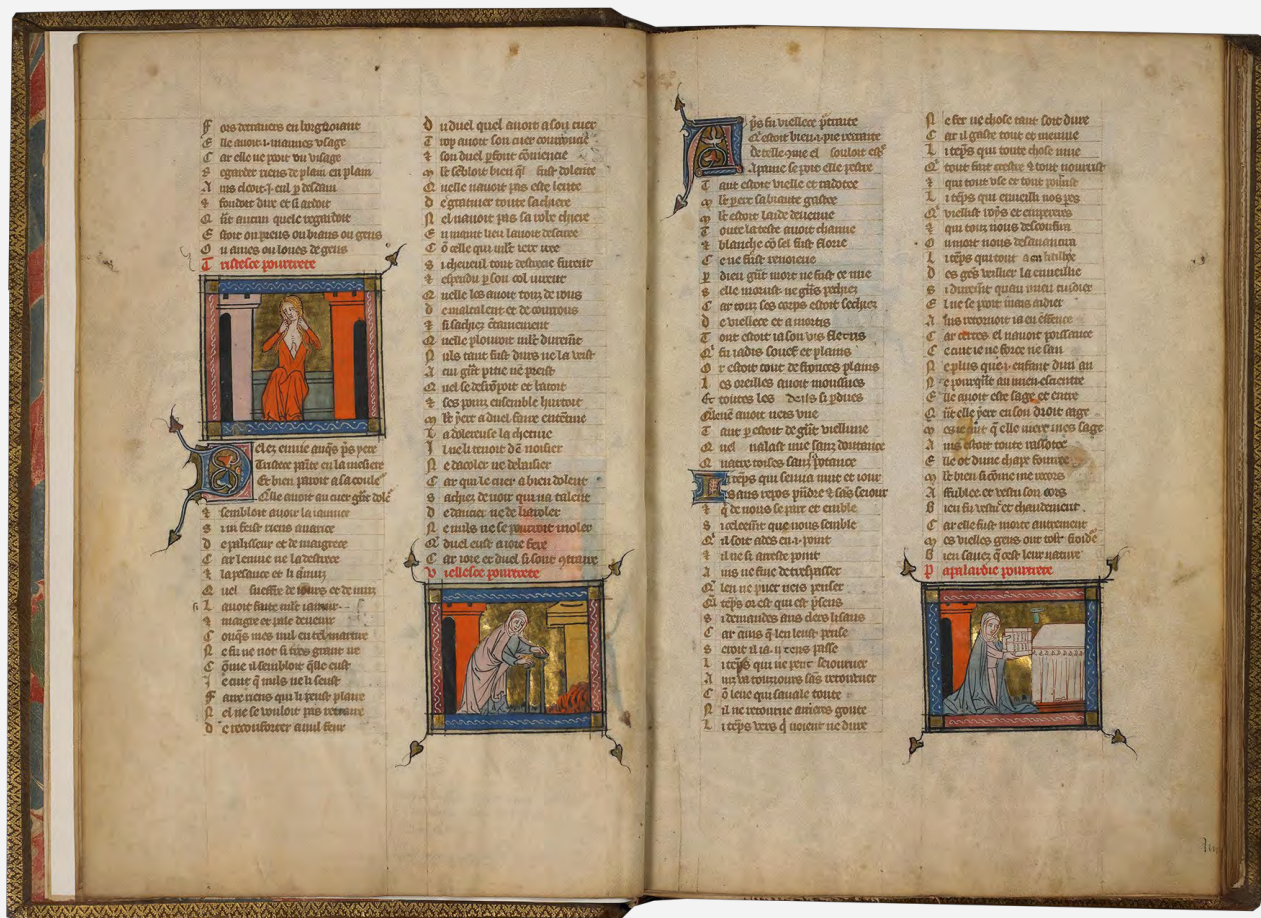 F ors de travers en borgnoiant
E lle avoit .i. mauves usage
C ar elle ne pooit ou visage
R egarder riens de plain en plain
A ins clooit .i. eul par desdain
& fondoit dire et si ardoit
Q ant aucun quele regardoit
E stoit ou preus ou biaus ou gens
O u ames ou loues de gens
T ristesce pourtrete
elez envie auques pres yere
Tristece painte en la mesiere
Et bien paroit a sa coulour
Quelle avoit au cuer grant dolour
& sembloit avoir la iaunice
S i ni feist riens avarice
D e palisseur et de maigrece
C ar lennui ne la destrece
& la pesance et li ennuiz
Q uel de iours et de nuiz
L avoit faite mlt iaunir
& maigre et pale devenir
O nques mes nul en tel martire
N e fu ne not si tres grant ire
C omme il sembloit quelle eust
I e cuit que nuls ne li seust
F aire riens qui li peust plaire
N el ne se vouloit pas retraire
D e reconforter a nul feur
D u duel quel avoit a son cuer
T rop avoit son cuer
& son duel parfont commencie
M lt sembloit bien quel fust dolente
Q uelle navoit pas este lente
D egratiner toute sa chiere
N el navoit pas sa robe chiere
E n maint lieu lavoit desciree
C om celle qui mlt iert iree
S i cheveul tout furent
& espandu par son col iurent
Q uelle les avoit touz derous
D e maltalent et de courrous
& si sachiez certainement
Q uelle plouroit mlt durement
N uls tant fust durs ne la veist
A cui grant pitie ne preist
Q uel se derompoit et batoit
& ses poins ensemble hurtoit
M lt yere a duel faire ententive
L a dolereuse la chetive
I l ne li tenoit denvoisier
N e dacoler ne de baisier
C ar qui le cuer a bien dolent
S achiez de voir quil na talent
D e dancier ne de karoler
N e nuls ne se pourroit moler
Q ui duel eust a ioie fere
C ar ioie et duel si sont contraire
V iellesce pourtrete
pres fu viellece pourtraite
Qui estoit bien .i. pie retraite
de telle comme el souloit estre
A paine se pooit elle pestre
T ant estoit vielle et radotee
M lt yert sa biaute gastee
M lt estoit laide devenue
T oute la teste avoit chanue
& blanche com sel fust florie
C e ne fust
P dieu grant mort ne fust ce mie
S elle morust ne granz pechiez
C ar touz ses corps estoit sechiez
D e viellece et amortis
T out estoit ia son vis fletris
Q ui fu iadis souef et plains
O r estoit tout de fronces plains
L es oreilles avoit moussues
Et toutes les denz si perdues
Quelle nen avoit
T ant par estoit de grant viellune
Q uel nalast mie sanz doutance
Q uatre toises sanz potance
Li temps qui senva nuit et iour
sans repos prendre & sans seiour
& qui de nous se part et emble
S i celeement que nous semble
Q uil soit ades en .i. point
& il ne si arreste point
A ins ne fine de trespasser
Q ue len ne puet neis penser
Q uel temps or est qui est presens
S i demandes aus clers lisans
C ar ains que len leust pense
S eroit il ia .ii. tens passe
L i temps qui ne peut seiourner
A ins va touziours sans retourner
C om leve qui savale toute
N il ne retourne arrieres goute
L i temps vers qui noient ne dure
N e fer ne chose tant soit dure
C ar il gaste tout et meniue
L i temps qui toute chose mue
Q ui tout fait crestre & tout nourrist
& qui tout use et tout pourrist
L i temps qui envielli nos peres
Q ui viellist roys et empereres
& qui touz nous
O u mort nous
L i temps qui tout a en baillie
D es gens viellir la enviellie
S i durement quau mien cuidier
E l ne se pooit mais aidier
A ins retornoit ia en enfance
C ar certes el navoit poissance
C e cuit ie ne force ne san
N e plus que .i. enfant dun an
N e pourquant au mien escientre
E lle avoit este sage et entre
Q uant elle yere en son droit aage
M es ie cuit quelle niere mes sage
A ins estoit toute rassotee
E lle ot dune chape fourree
M lt bien si comme me recors
A ffublee et vestu son cors
B ien fu vestue et chaudement
C ar elle fust morte autrement
M es vielles gens ont tost froidure
B ien savez que cest leur nature
P apalardie pourtrete